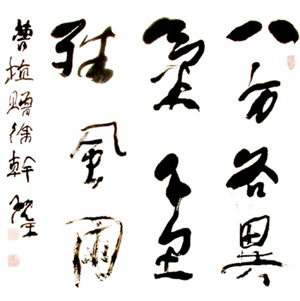 八方各異
氣千里
殊風雨
曹植贈徐幹